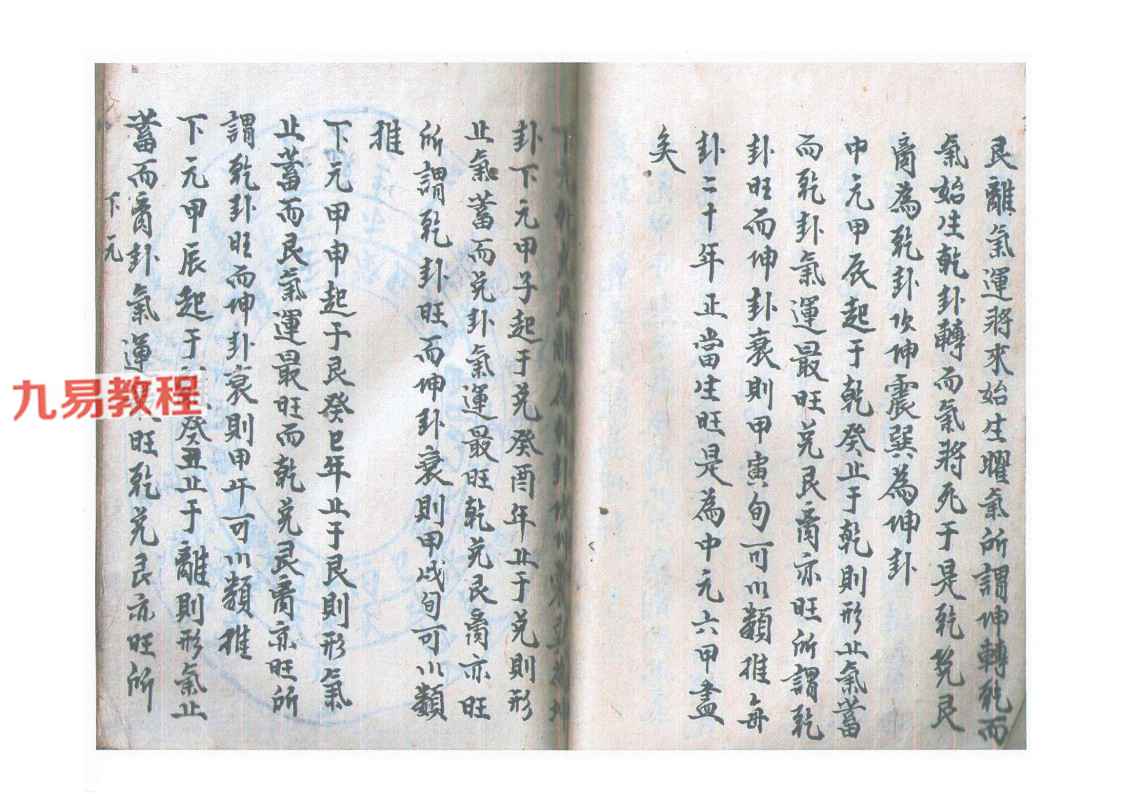 艮離氣運將來始生曜氣所謂坤轉乾而
氣始生乾卦轉而氣將死于是乾兌艮
离為乾卦坎坤震巽為坤卦
中元甲辰起于乾癸止于乾則形止氣蓄
而乾卦氣運最旺兌艮离亦旺所謂乾
卦旺而坤卦衰則甲寅旬可以類推每
卦二十年正當生旺是為中元六甲盡
矣
卦下元甲子起于兌癸酉年止于兌則形
止氣蓄而兌卦氣運最旺乾兌艮离亦旺
所謂乾卦旺而坤卦衰則甲戌旬可以類
推
下元甲申起于艮癸巳年止于艮則形氣
止蓄而艮氣運最旺而乾兌艮离亦旺所
謂乾卦旺而坤卦衰則甲午可以類推
下元甲辰起于癸丑止于離則形氣止
蓄而离卦氣運旺乾兌艮亦旺所
下元
九易教程